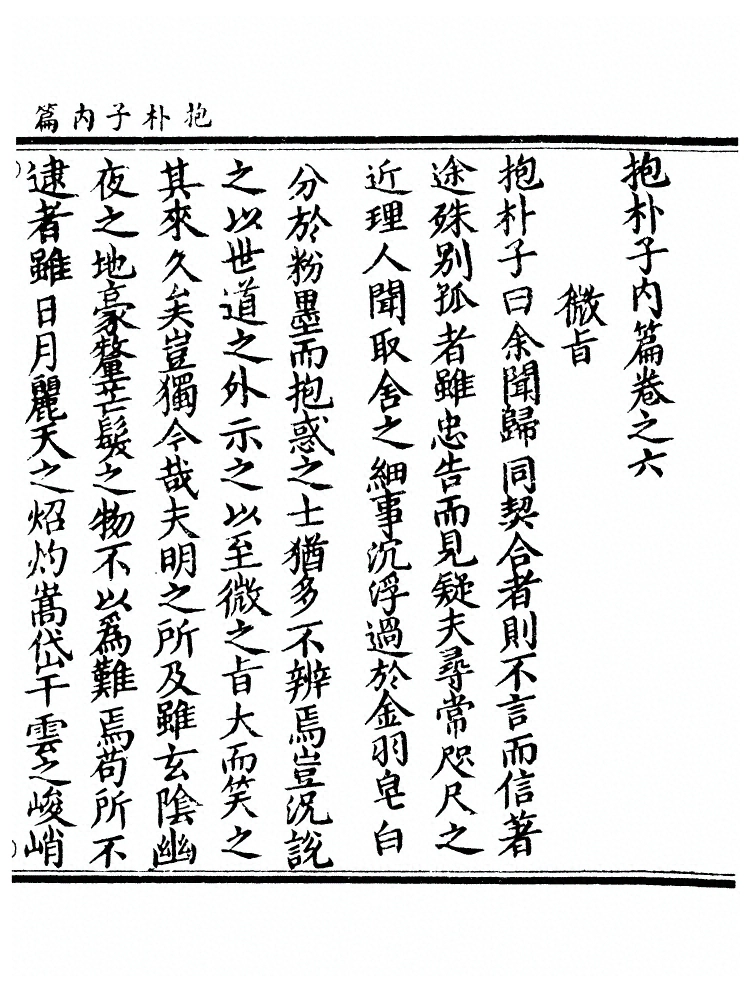 抱朴子內篇
抱朴子內篇卷之六
微旨
抱朴子曰余聞歸同契合者則不言而信著
途殊別孤者雖忠告而見疑夫尋常咫尺之
近理人聞取舍之細事沉浮過於金羽皂白
分於粉墨而抱惑之士猶多不辨焉豈況說
之以世道之外示之以至微之旨大而笑之
其來久矣豈獨今哉夫明之所及雖玄陰幽
夜之地豪釐芒髮之物不以爲難焉苟所不
逮者雖日月麗天之炤灼嵩岱干雲之峻峭